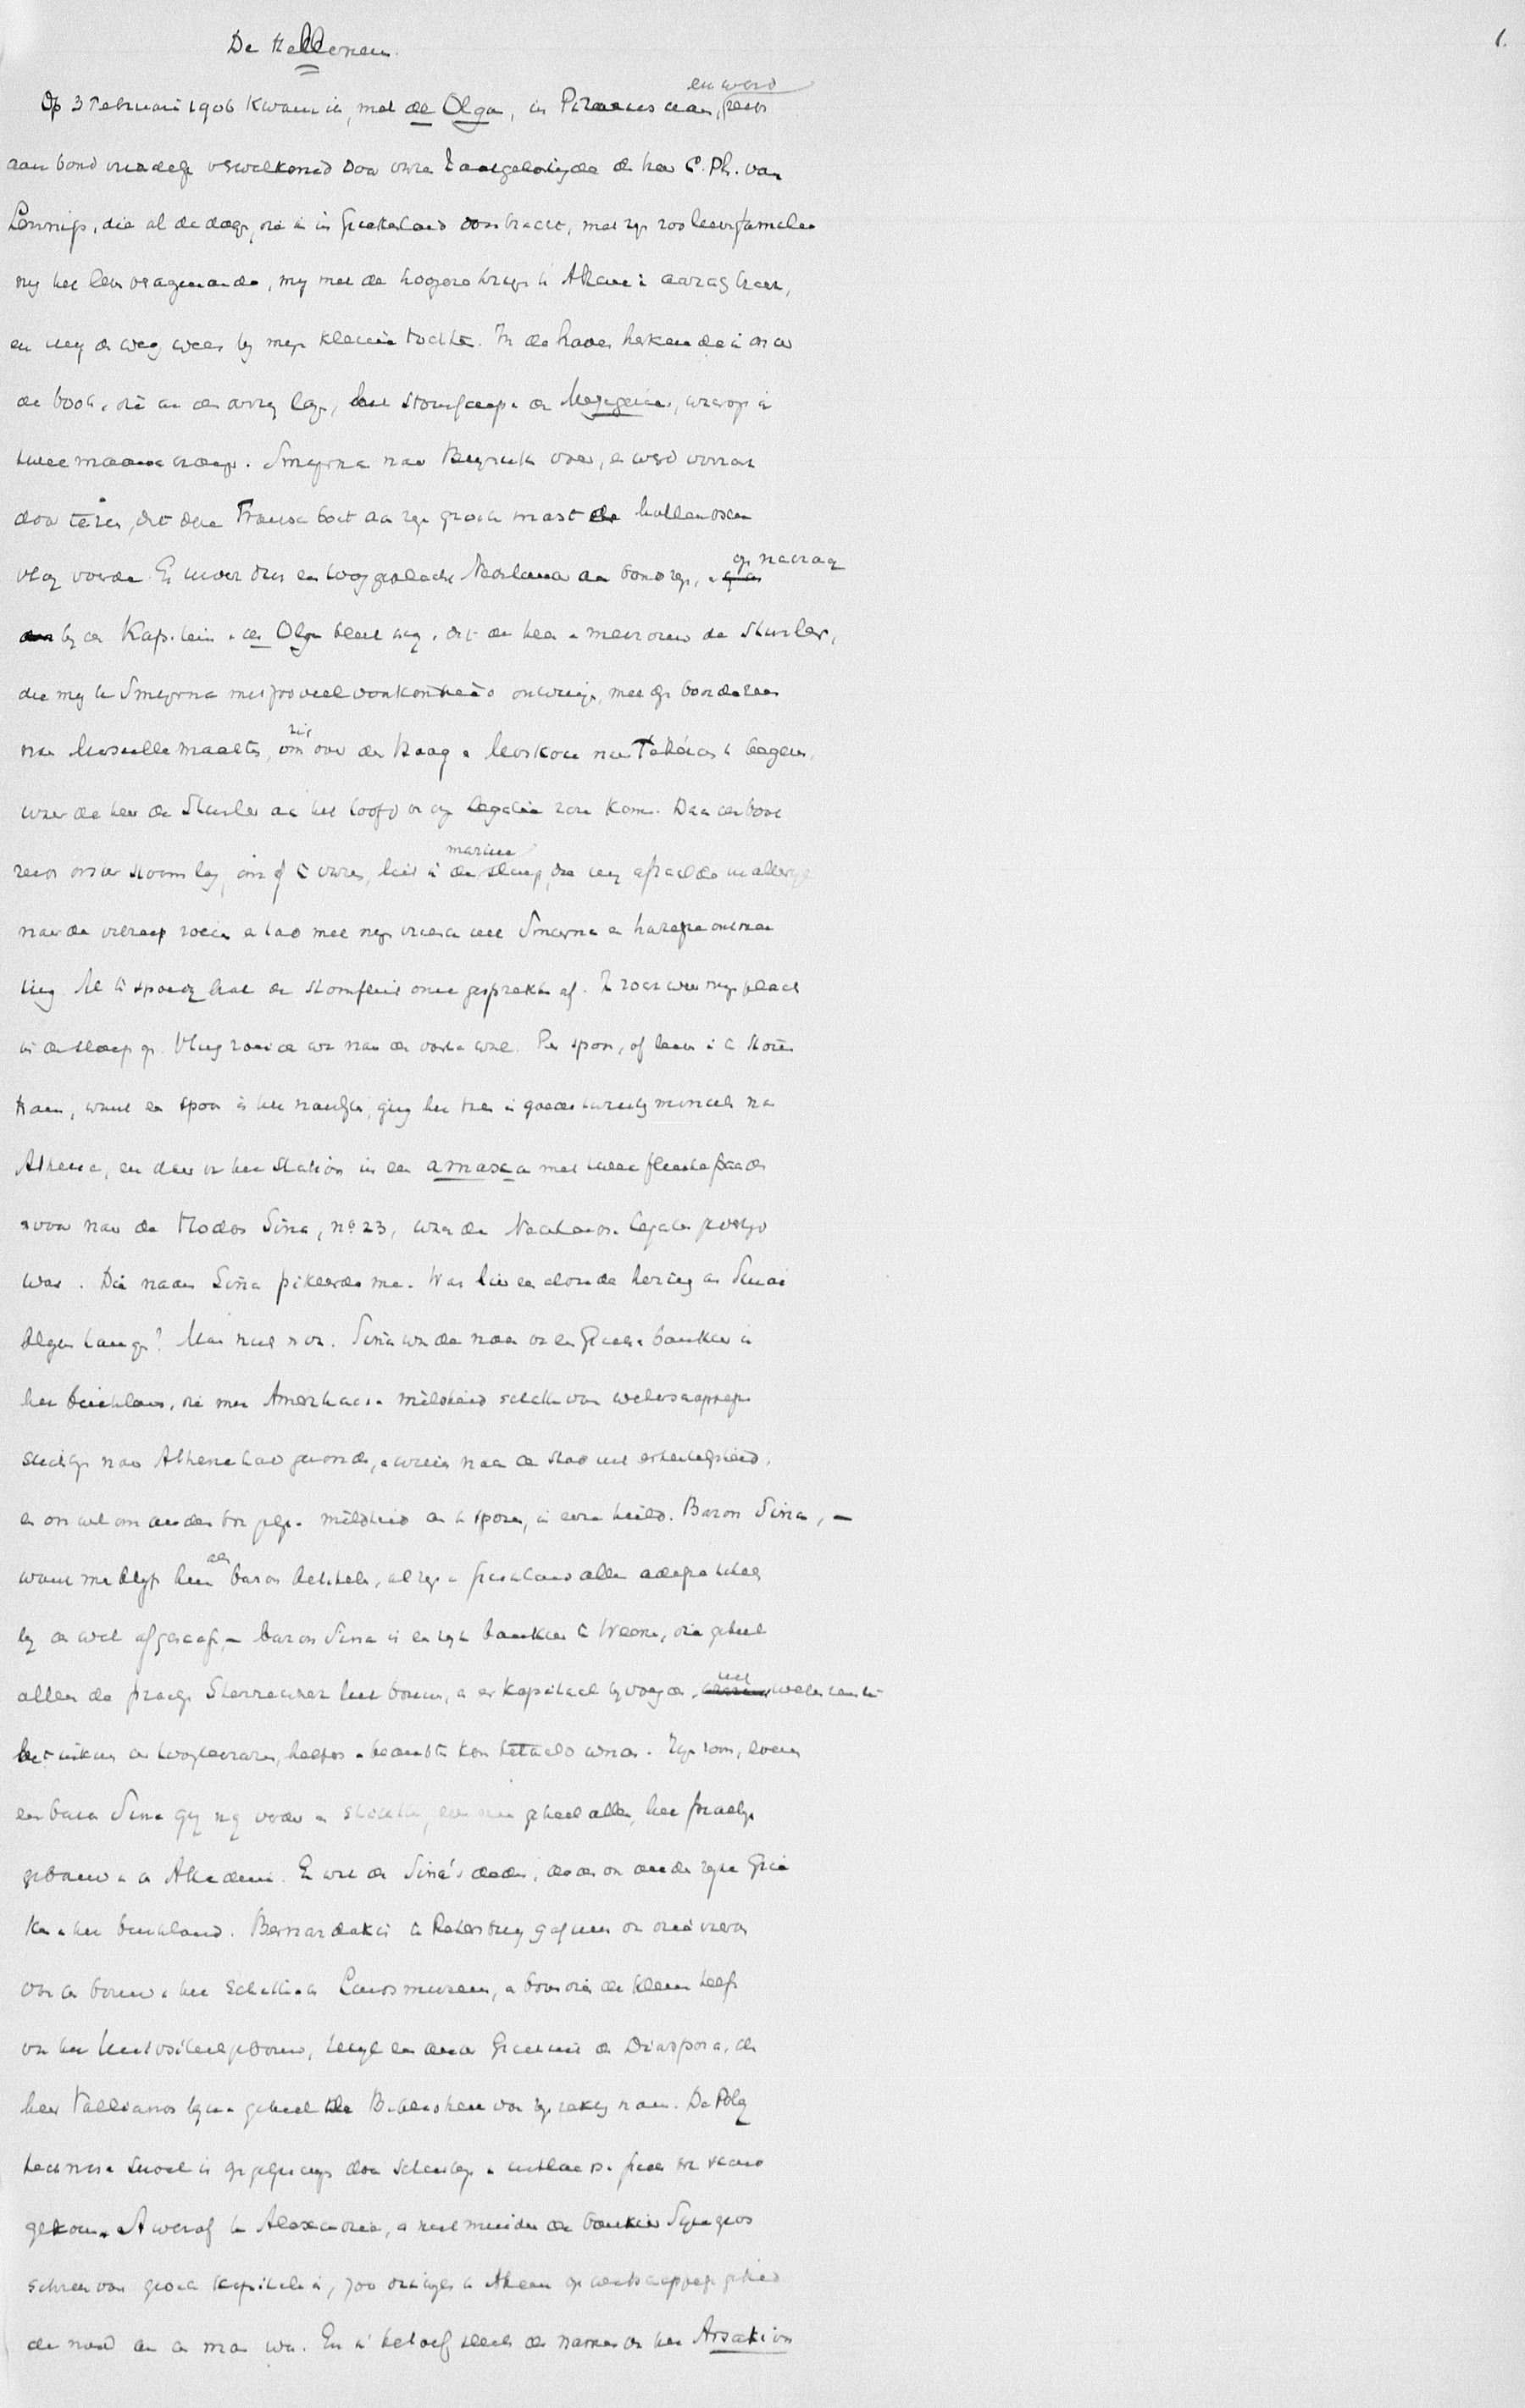 De Hellenen.
1.
en werd
Op 3 Februari 1906 kwam ik, met de Olga, in Piraeus aan, reeds
aan boord vriendelijk verwelkomd door onze Zaakgelastigde de heer C. Ph. van
Lennep, die al de dagen, die ik in Griekenland doorbracht, met zijn
mij het leven veraangenaamde, mij met de hoogere kringen in Athene in aanraking bracht,
en mij de weg wees bij mijn kleine tochten. In de haven herkende ik onder
de booten, die aan den anker lagen, het stoomschip de waarop ik
twee maanden vroeger van Smyrna naar Beyruth voer, en werd verrast
door te zien, dat deze Fransche boot aan zijn grooten mast de hollandsche
vlag voerde. Er moest dus een hooggeplaatst Nederlander aan boord zijn, en op navraag
bij den Kapitein van de Olga bleek mij, dat de heer en mevrouw de Sturler,
die mij te Smyrna met zooveel voorkomendheid ontvingen, mee op boord waren
naar Marseille maakten, om zich over den Haag en Moskou naar Teheran te begeven,
waar de heer de Sturler aan het hoofd van onze legatie zou komen. Daar de boot
reeds onder stoom lag, om af te varen, liet ik de marine sloep, die mij afhaalde in allerijl
naar de roeien en had met mijn vrienden uit Smyrna een hartelijke ontmoe
ting. Al te spoedig brak de stoomfluit onze gesprekken af. Ik zocht weer mijn plaats
in de sloep op. Vlug roeide we naar de vaste wal. Per spoor, of liever in de stoom
tram, want een spoor is het nauwelijks, ging het toen in goede twintig minuten naar
Athene, en daar van het station in een amaxa met twee flinke paarden
ervoor naar de Hodos Sina, nº 23, waar de Nederlandsche legatie gevestigd
was. Die naam Sina pikeerde me. Was hier een aloude herinnering aan Sinai
blijven hangen? Maar niets er van. Sina was de naam van een Grieksche bankier in
het buitenland, die met Amerikaansche mildheid schatten voor wetenschappelijke
stichtingen naar Athene had gezonden, en wiens naam de stad uit erkentelijkheid,
en ook wel om anderen tot gelijke mildheid aan te sporen, in eere hield. Baron Sina, –
want men blijft hem als baron betitelen, al zijn in Griekenland alle adellijke titels
bij de wet afgeschaft, – baron Sina is een rijk bankier te Weenen, die geheel
alleen de prachtige Sterrewacht liet bouwen, en er kapitaal bijvoegde, uit welks rente
het inkomen der hoogleeraren, helpers en beambten kon betaald worden. Zijn zoon, even
een baron Sina ging nog verder en stichtte, geheel alleen, het prachtige
gebouw van de Akademie. En wat de Sina's deden, deden ook andere rijke Grie
ken in het buitenland. Bernardakis te Petersburg gaf meer dan drie vierden
voor den bouw van het Landsmuseum, en bouwde de kleine helft
van het Universiteitsgebouw, terwijl een ander Griek uit de Diaspora, de
heer Vallianos bijna geheel de Bibliotheek voor zijn rekening nam. De Poly
technische School is opgetrokken door schenkingen van uitlandsche Grieken tot stand
gekomen. Averof te Alexandrië, en niet minder de bankier Syngros
schreven groote kapitalen in, zoo dikwijls te Athene op wetenschappelijk gebied
de nood aan den man was. En ik behoef slechts de namen van het Arsakion